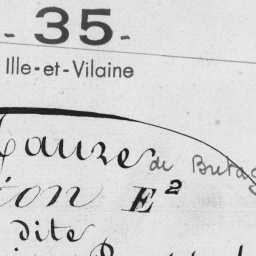 - 35 -
Ille-et-Vilaine
Lauzes de Bretag
ion E²
dite